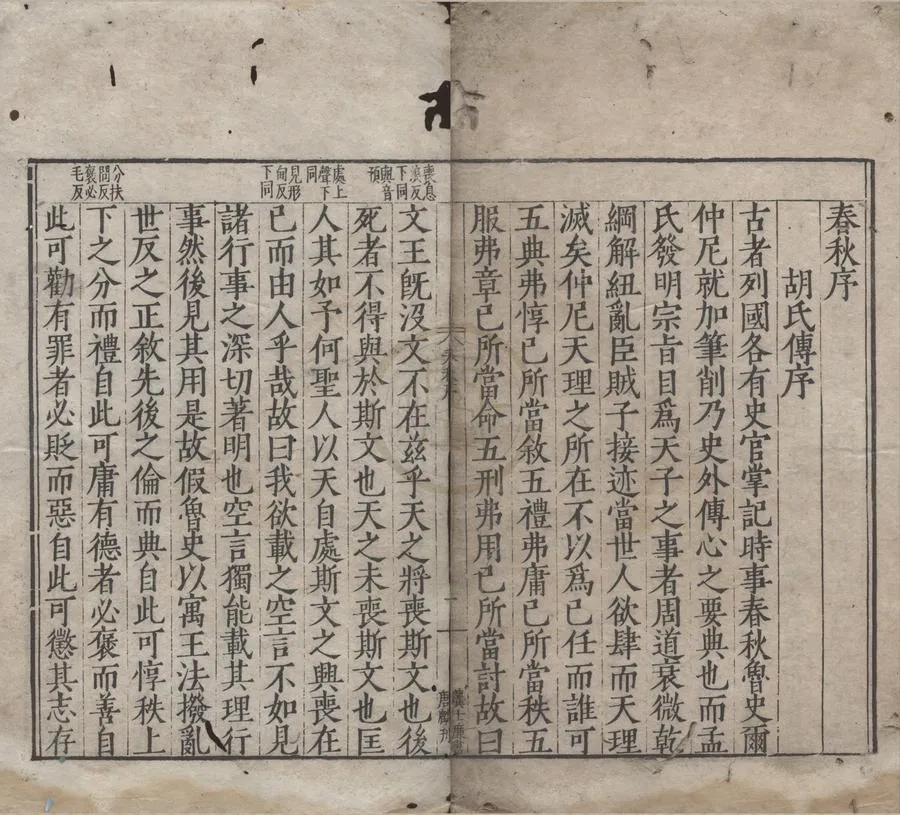 春秋序
胡氏傳序
古者列國各有史官掌記時事春秋魯史爾
仲尼就加筆削乃史外傳心之要典也而孟
氏發明宗旨目爲天子之事者周道衰微乾
綱解紐亂臣賊子接迹當世人欲肆而天理
滅矣仲尼天理之所在不以爲己任而誰可
五典弗惇己所當敘五禮弗庸己所當秩五
服弗章己所當命五刑弗用己所當討故曰
文王旣沒文不在茲乎天之將喪斯文也後
死者不得與於斯文也天之未喪斯文也匡
人其如予何聖人以天自處斯文之興喪在
己而由人乎哉故曰我欲載之空言不如見
諸行事之深切著明也空言獨能載其理行
事然後見其用是故假魯史以寓王法撥亂
世反之正敘先後之倫而典自此可惇秩上
下之分而禮自此可庸有德者必褒而善自
此可勸有罪者必貶而惡自此可懲其志存
喪息
浪反
下同
與音
預
處上
聲下
同
見形
甸反
下同
分扶
問反
褒必
毛反
春秋序
一